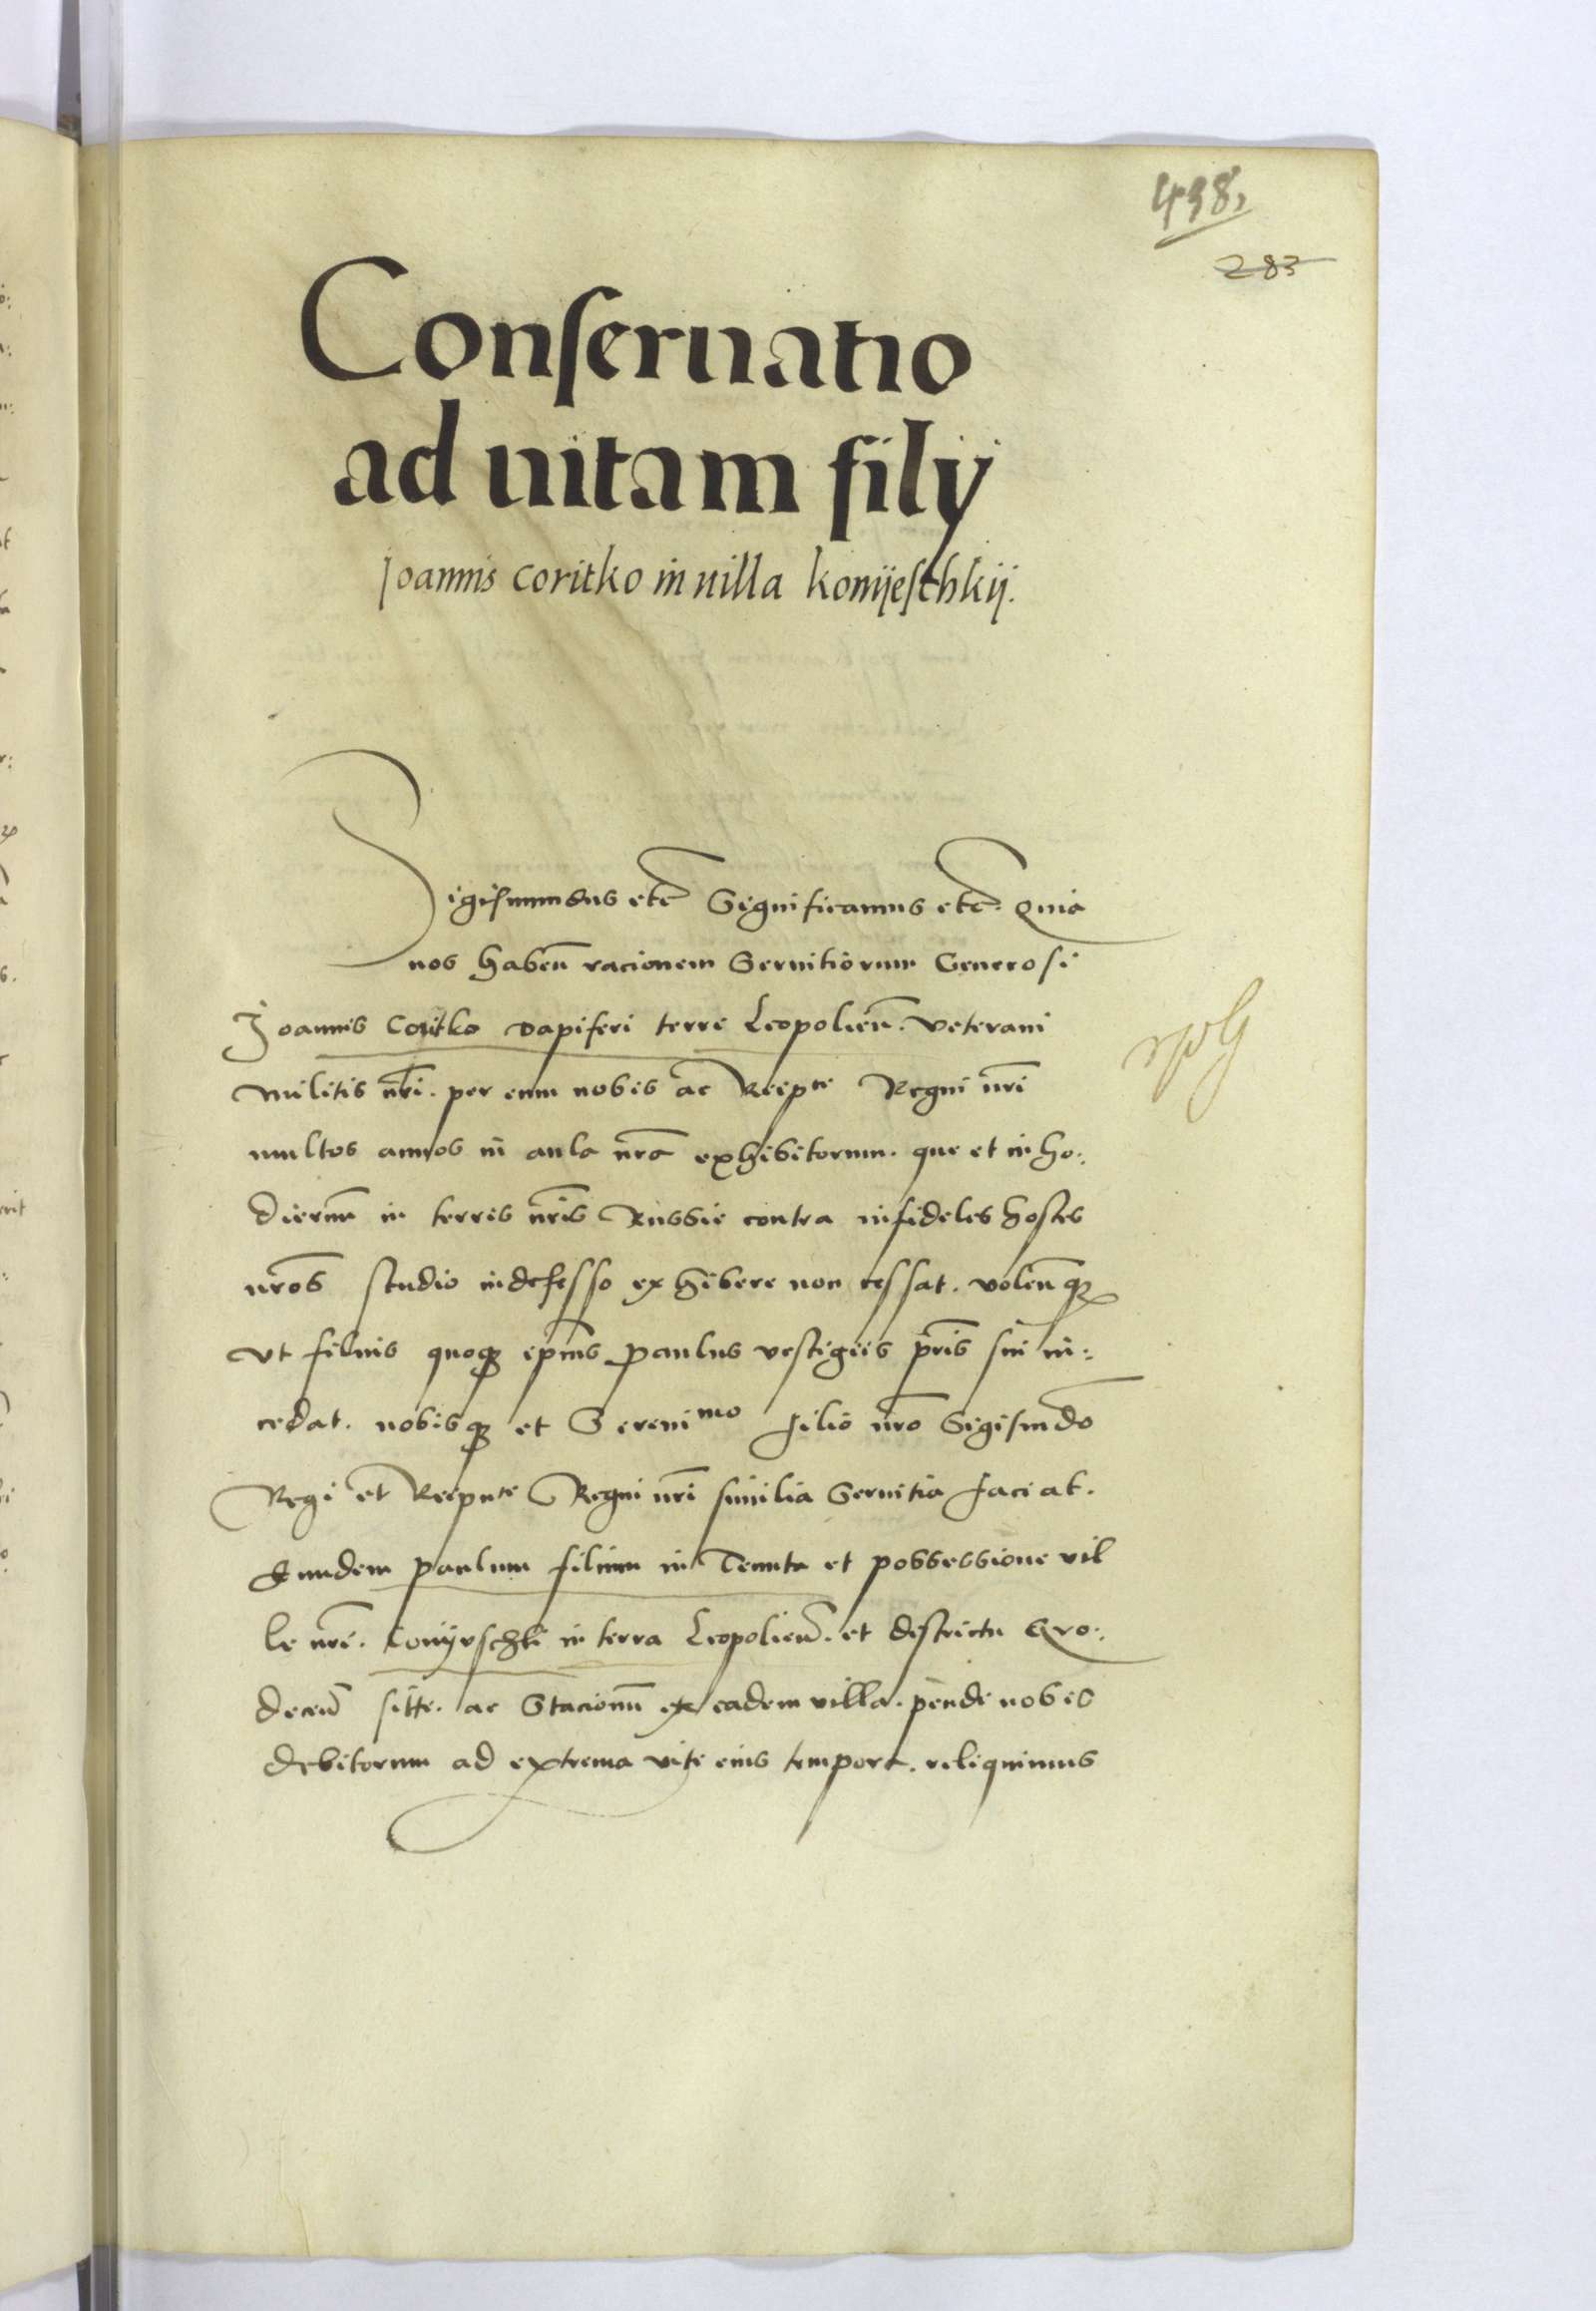 438,
283
Conseruatio
ad uitam filij
Joannis coritko in uilla konijeschkij.
Sigismundus etc Significamus etc. Quia
nos habeñ racionem Seruitiorum Generosi
Joannis Coritko dapiferi terre Leopolieñ. veterani
militis nr̃i. per eum nobis ac Reipce Regni nr̃i
multos annos in aula nr̃a exhibitorum. que et in ho:
diernũ in terris nr̃is Russie contra infideles hostes
nr̃os studio indefesso exhibere non cessat. voleñqꝫ
vt filius quoqꝫ ipius Paulus vestigiis pr̃is sui in:
cedat. nobisqꝫ et Serenimo filio nr̃o Sigismdo
Regi et Reipce Regni nr̃i similia Seruitia faciat.
Eundem Paulum filium in Tenuta et possessione vil
le nr̃e. Conijeschki in terra Leopolieñ. et districtu Gro:
deceñ sitte. ac Stacionũ ex eadem villa. pende nobis
debitorum ad extrema vite eius tempora. reliquimus